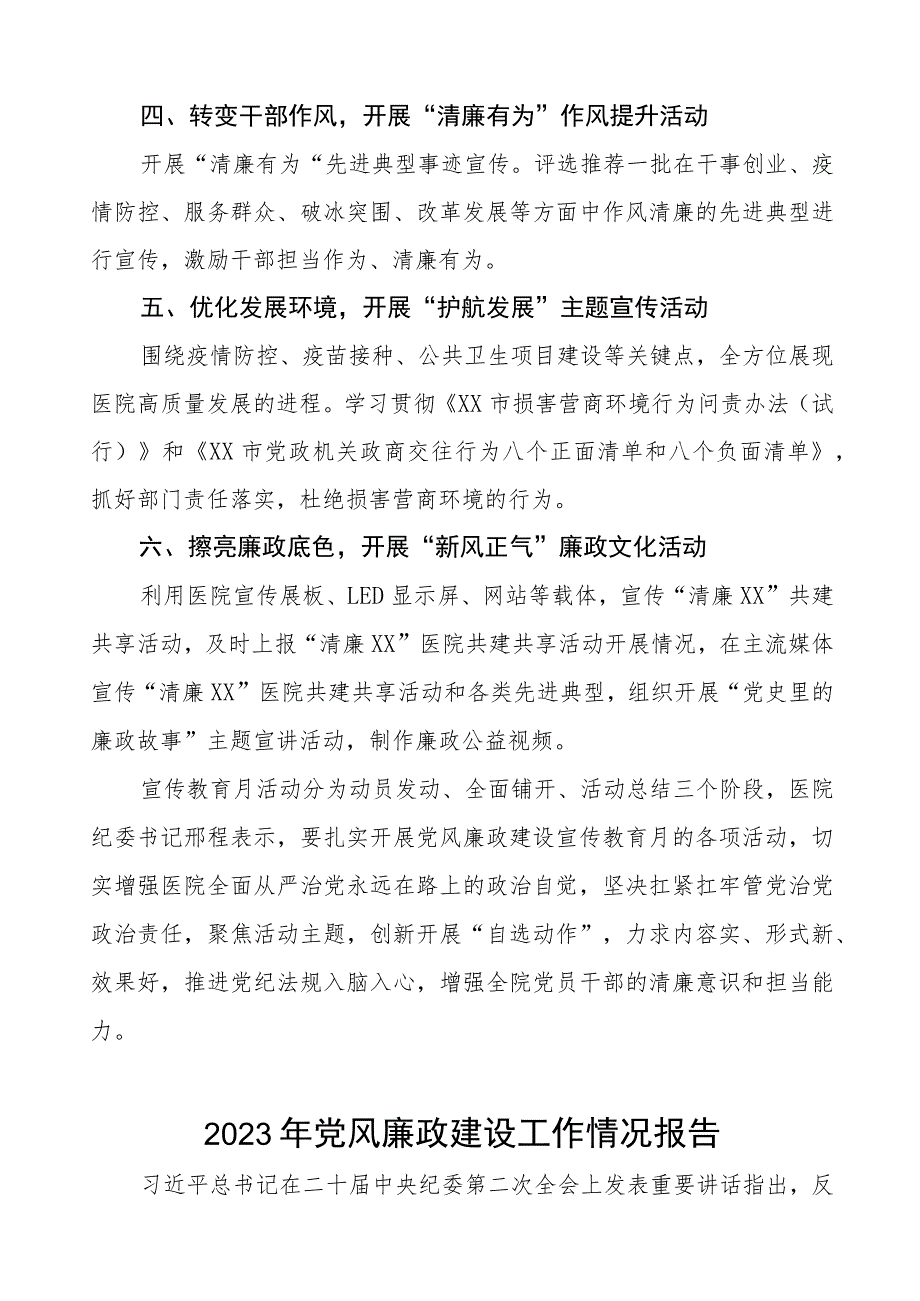 四、转变干部作风，开展“清廉有为”作风提升活动
开展“清廉有为“先进典型事迹宣传。评选推荐一批在干事创业、疫
情防控、服务群众、破冰突围、改革发展等方面中作风清廉的先进典型进
行宣传，激励干部担当作为、清廉有为。
五、优化发展环境，开展“护航发展”主题宣传活动
围绕疫情防控、疫苗接种、公共卫生项目建设等关键点，全方位展现
医院高质量发展的进程。学习贯彻《XX市损害营商环境行为问责办法（试
行）》和《XX市党政机关政商交往行为八个正面清单和八个负面清单》，
抓好部门责任落实，杜绝损害营商环境的行为。
六、擦亮廉政底色，开展“新风正气”廉政文化活动
利用医院宣传展板、LED显示屏、网站等载体，宣传“清廉XX”共建
共享活动，及时上报“清廉XX”医院共建共享活动开展情况，在主流媒体
宣传“清廉XX”医院共建共享活动和各类先进典型，组织开展“党史里的
廉政故事”主题宣讲活动，制作廉政公益视频。
宣传教育月活动分为动员发动、全面铺开、活动总结三个阶段，医院
纪委书记邢程表示，要扎实开展党风廉政建设宣传教育月的各项活动，切
实增强医院全面从严治党永远在路上的政治自觉，坚决扛紧扛牢管党治党
政治责任，聚焦活动主题，创新开展“自选动作”，力求内容实、形式新、
效果好，推进党纪法规入脑入心，增强全院党员干部的清廉意识和担当能
力。
2023年党风廉政建设工作情况报告
习近平总书记在二十届中央纪委第二次全会上发表重要讲话指出，反